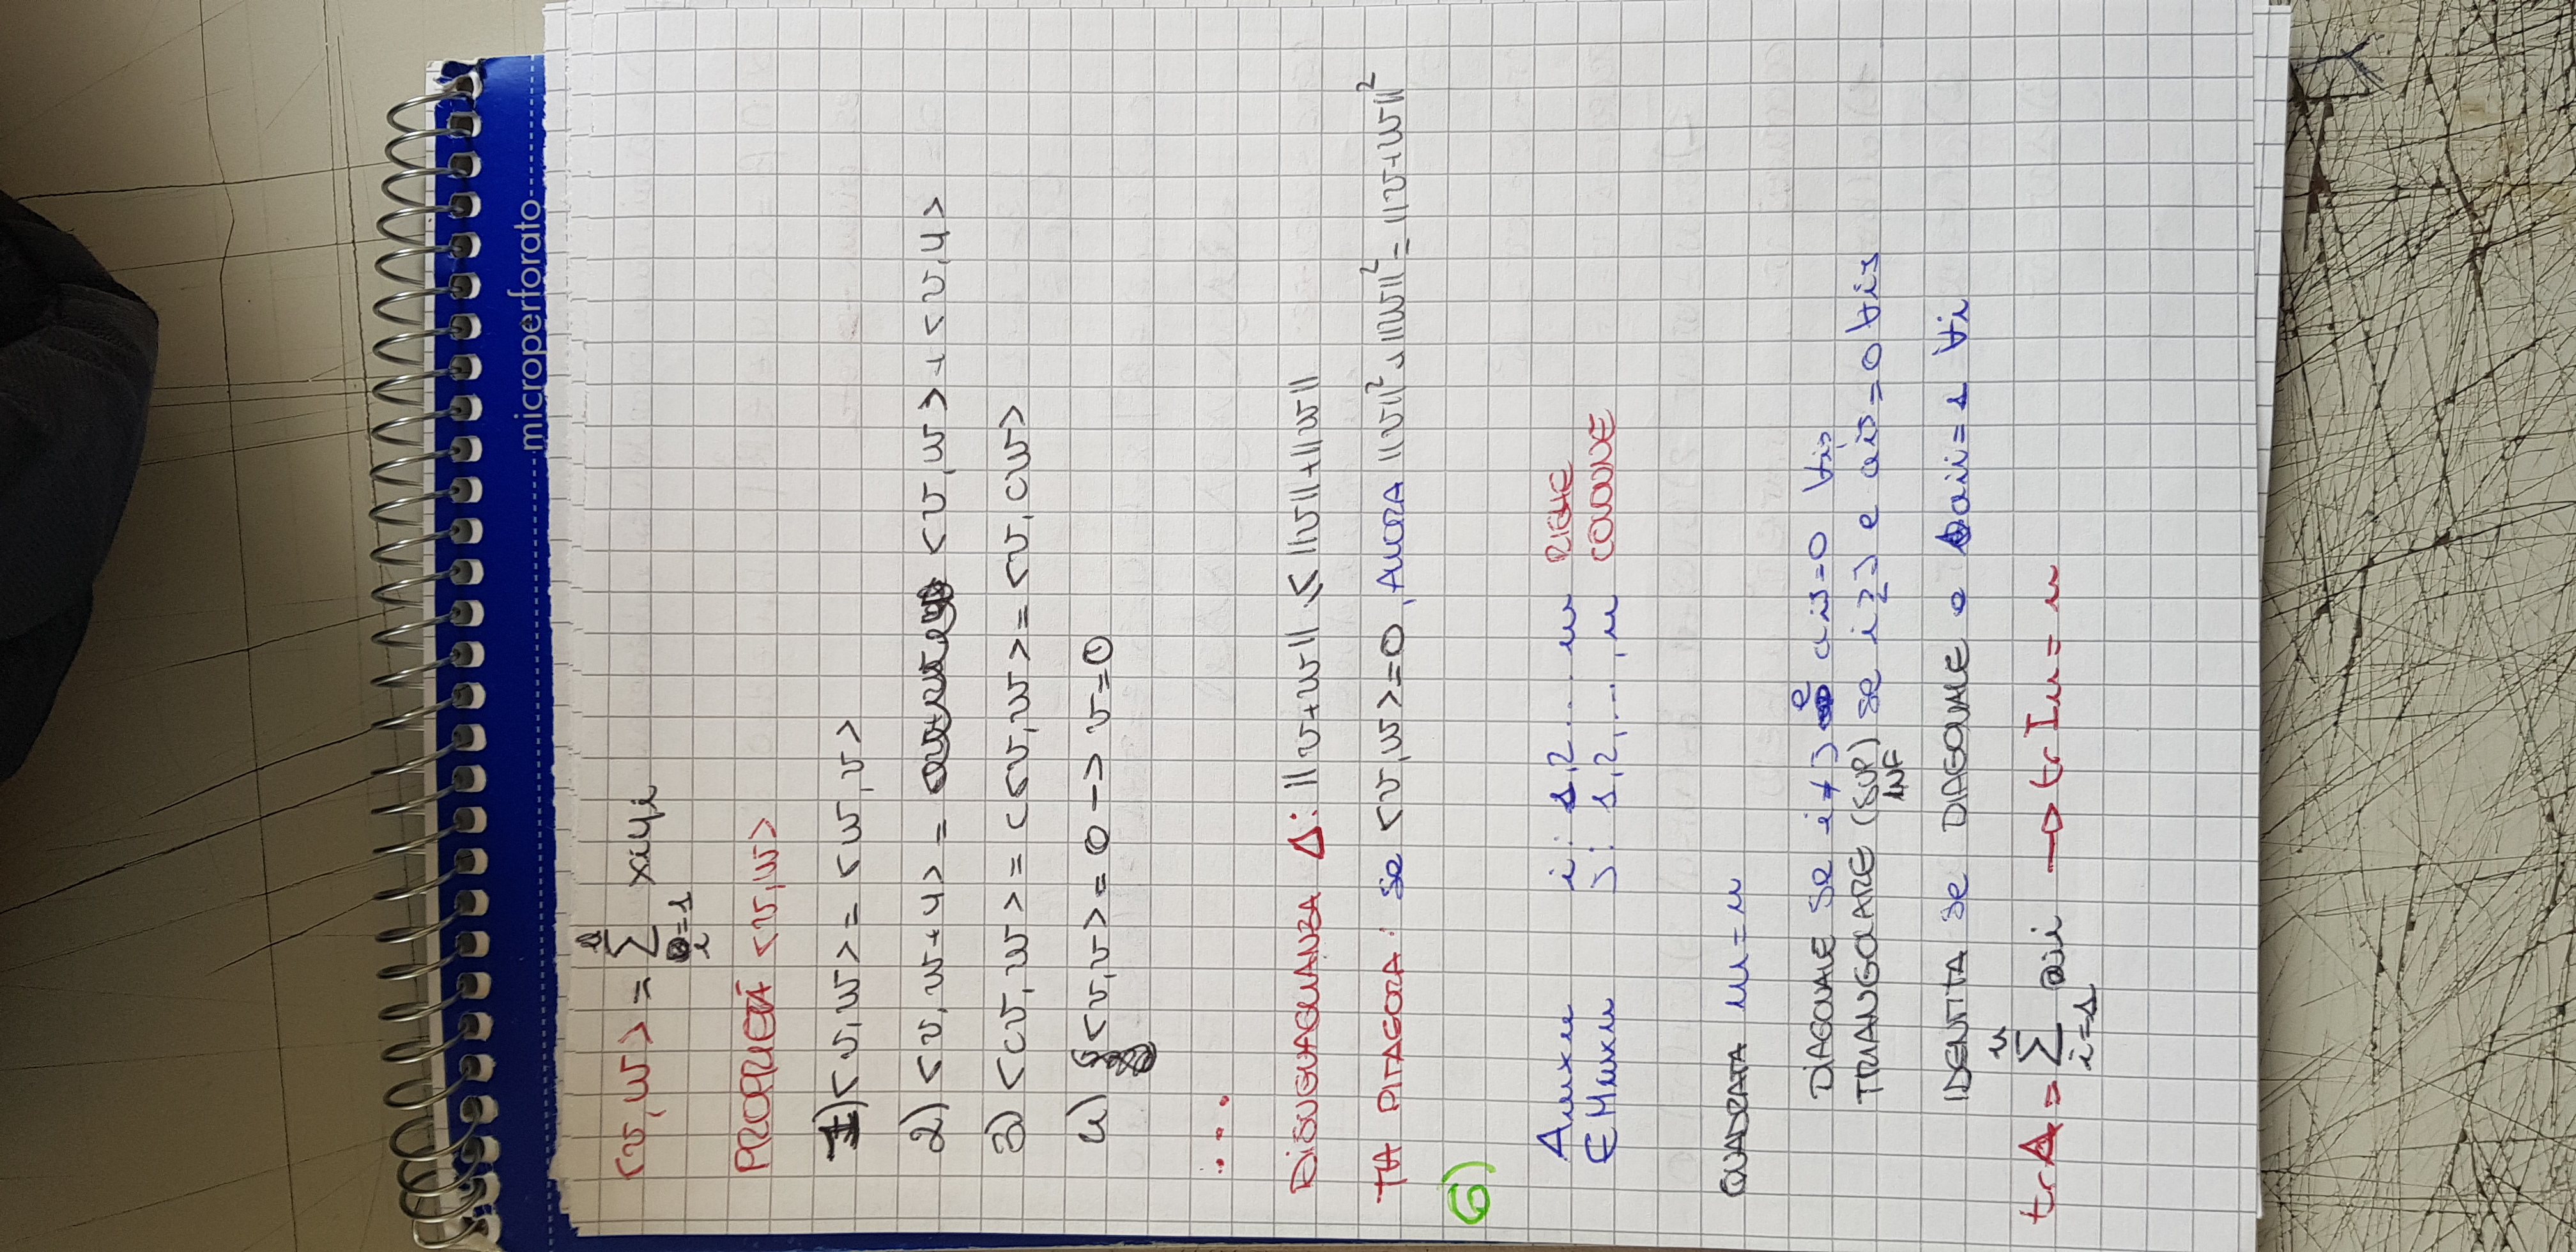 microperforato
<v,w> = Σ xiyi
i=1
PROPRIETÀ <v,w>
1) <v,w> = <w,v>
2) <v,w+u> = <v,w>+<v,u>
3) <cv,w> = c<v,w> = <v,cw>
4) <v,v> = 0 -> v=0
...
DISUGUAGLIANZA Δ: ||v+w|| ≤ ||v||+||w||
TH PITAGORA: se <v,w>=0, ALLORA ||v||²+||w||²=||v+w||²
6)
Amxn i: 1,2... m RIGHE
∈ Mmxn J: 1,2,...,n COLONNE
QUADRATA m=n
DIAGONALE se i≠J e aiJ=0 ∀iJ
TRIANGOLARE (SUP) se i≥J e aiJ=0 ∀iJ
INF
IDENTITA se DIAGONALE e aii=1 ∀i
n
trA = Σ aii → tr In = n
i=1